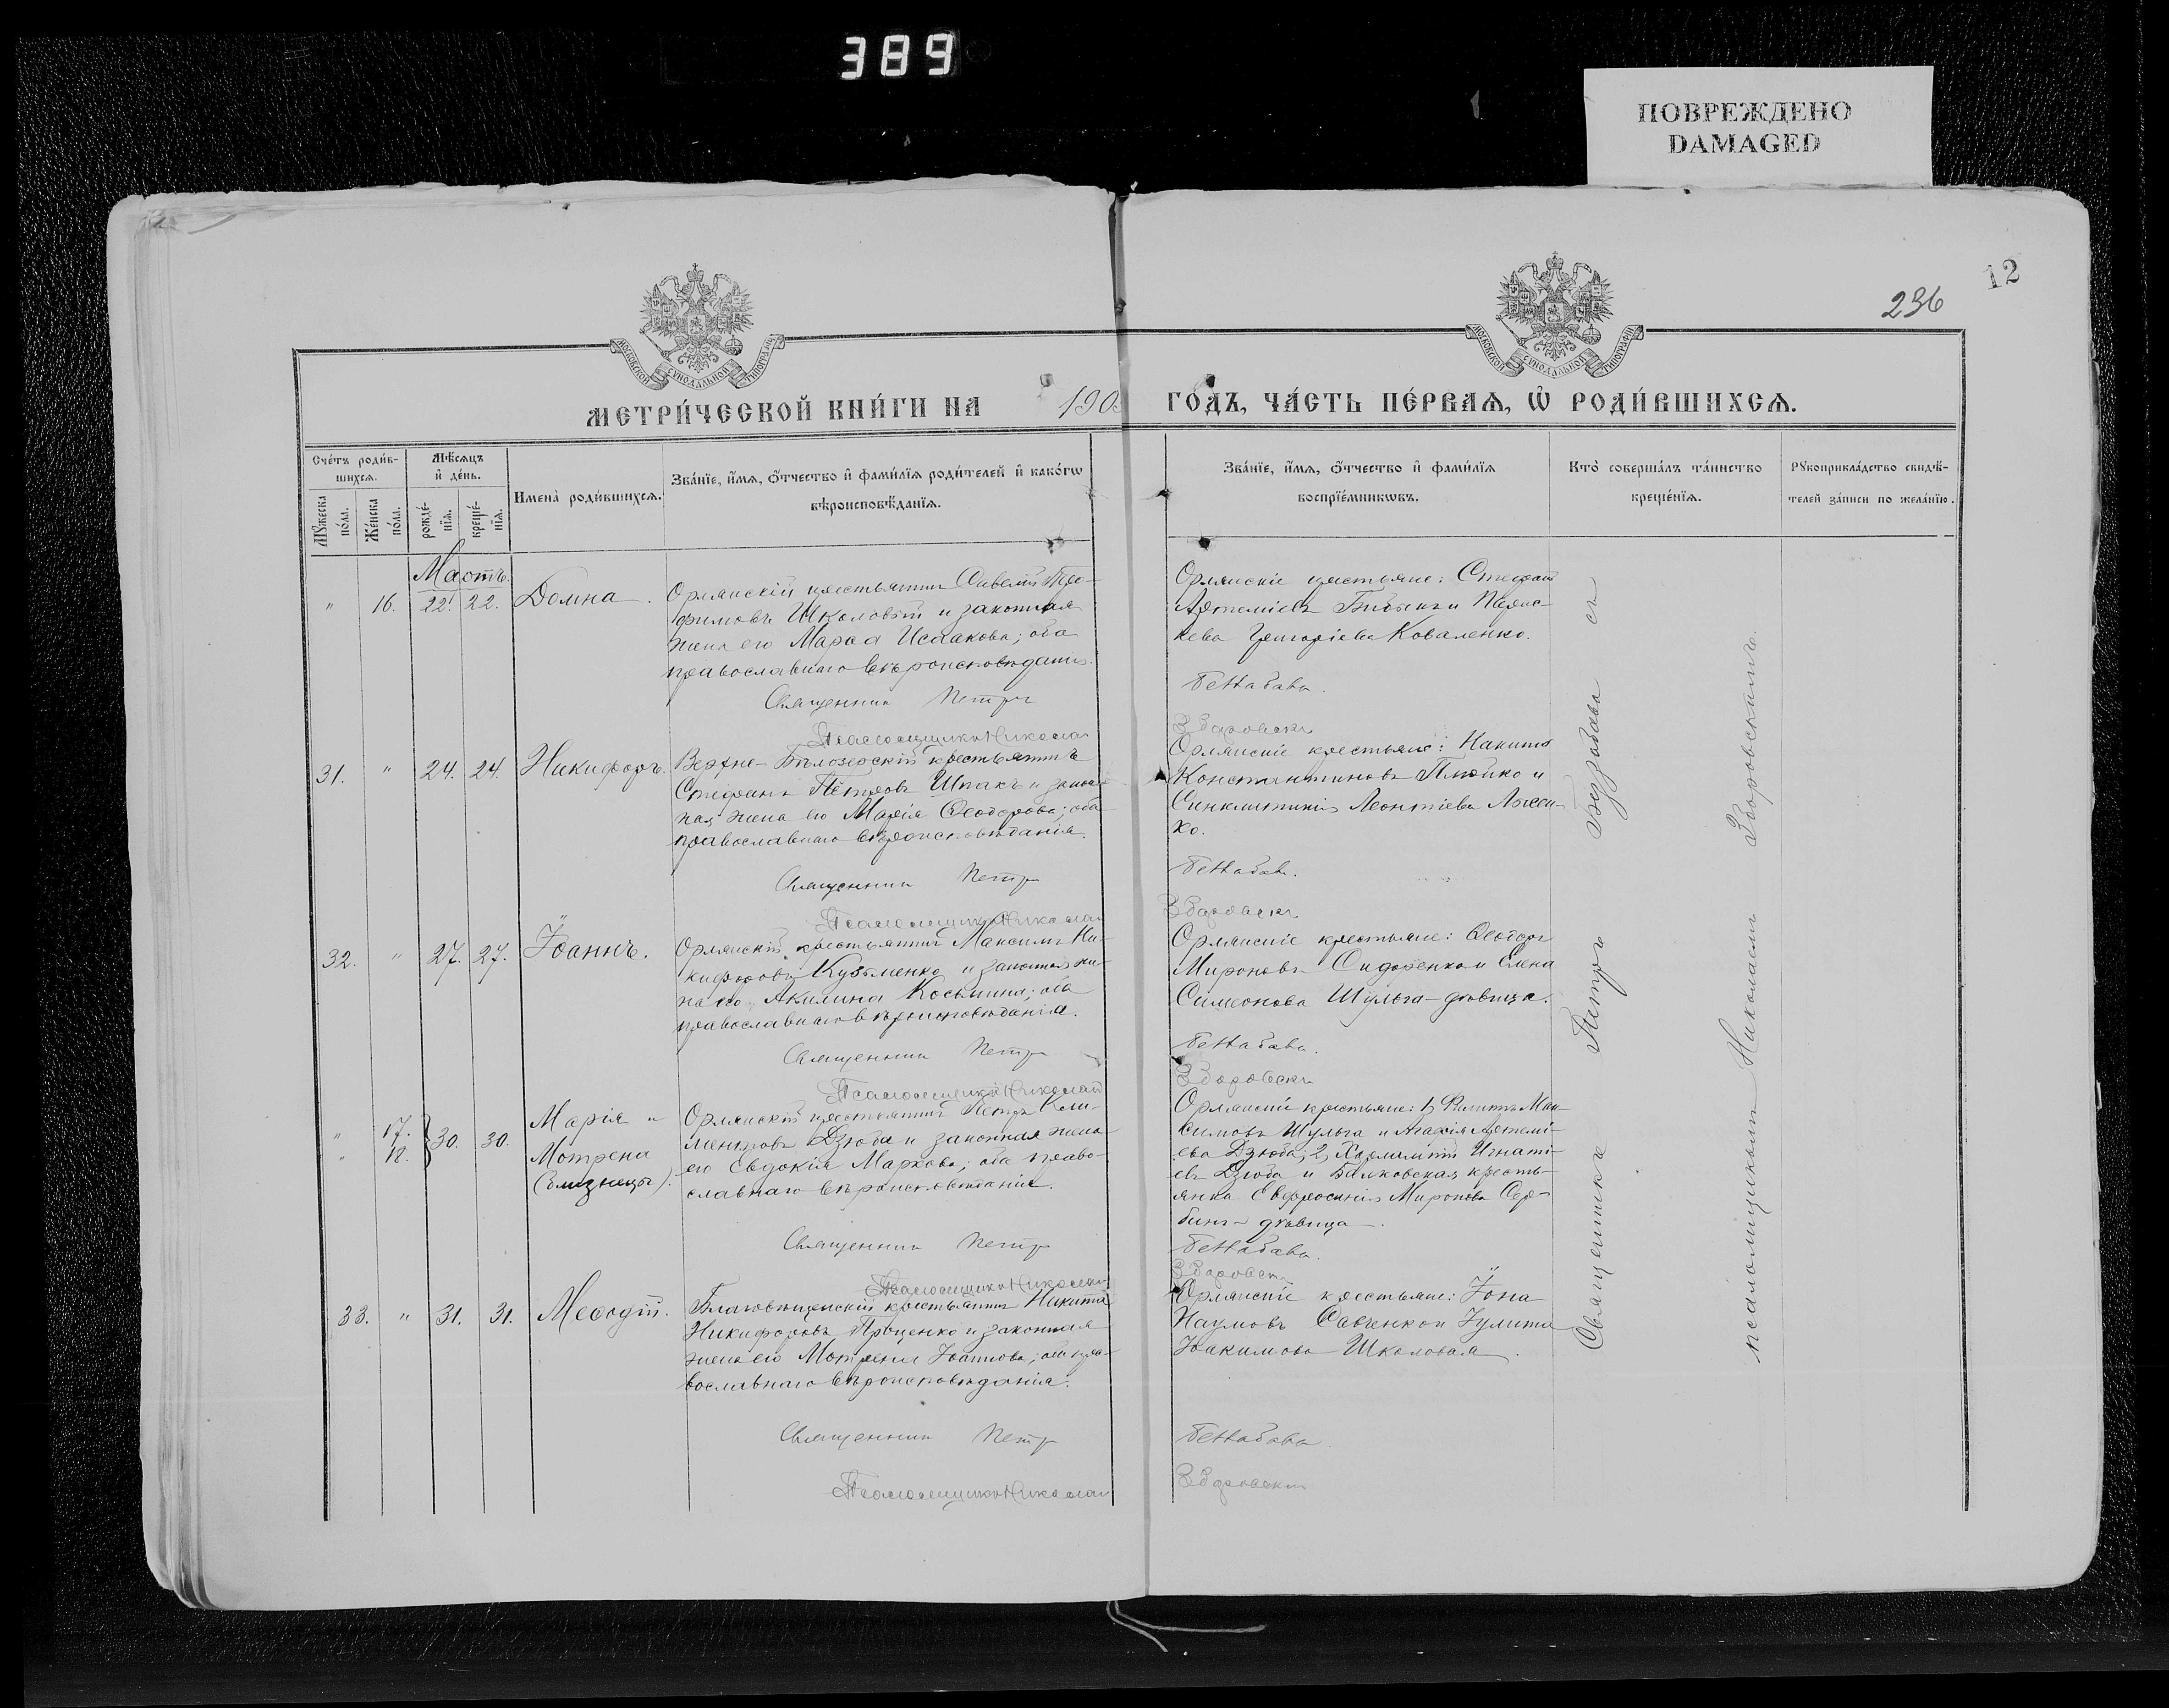 389
ПОВРЕЖДЕНО
DAMAGED
12
236
МОСКОВСКОЙ СѴНОДАЛЬНОЙ ТИПОГРАФІИ
МОСКОВСКОЙ СѴНОДАЛЬНОЙ ТИПОГРАФІИ
МЕТРИ́ЧЕСКОЙ КНИ́ГИ НА 190 ГО́ДЪ, ЧА́СТЬ ПЕ́РВАѦ, Ѽ РОДИ́ВШИХСѦ.
Сче́тъ роди́в-
шихсѧ.
Мꙋ́жеска
по́ла.
Же́нска
по́ла.
Мѣ́сяцъ
и҆ де́нь.
рожде́-
нїѧ.
креще́-
нїѧ.
Имена̀ роди́вшихсѧ.
Зва́нїе, и҆́мѧ, ѻ҆́тчество и҆ фами́лїѧ роди́телей и҆ како́гѡ
вѣроисповѣ́данїѧ.
Зва́нїе, и҆́мѧ, ѻ҆́тчество и҆ фами́лїѧ
воспрїе́мникѡвъ.
Кто̀ соверша́лъ та́инство
креще́нїѧ.
Рꙋкоприкла́дство свидѣ́-
телей за́писи по жела́нїю.
Мартъ.
" 16. 22. 22. Домна.
Орлянскій крестьянинъ Савелій Тро-
фимовъ Школовый и законная
жена его Исаакова; оба
православнаго вѣроисповѣданія.
Священникъ Петръ
Псаломщикъ Николай
Орлянскіе крестьяне: Стефанъ
Артеміевъ и Парас-
кева Григоріева Коваленко.
Беззабава.
Здаровскій
31. " 24. 24. Никифоръ.
Верхне-Бѣлозерскій крестьянинъ
Стефанъ Петровъ Шпакъ и закон-
ная жена его Марія Ѳеодорова; оба
православнаго вѣроисповѣданія.
Священникъ Петръ
Псаломщикъ Николай
Орлянскіе крестьяне:
Константиновъ и
Синклитикія Леонтіева
ко.
Беззабава.
Здаровскій
32. " 27. 27. Іоаннъ.
Орлянскій крестьянинъ Максимъ Ни-
кифоровъ Кузьменко и законная же-
на его Акилина Косьмина; оба
православнаго вѣроисповѣданія.
Священникъ Петръ
Псаломщикъ Николай
Орлянскіе крестьяне: Ѳеодоръ
Мироновъ Сидоренко и Елена
Симеонова Шульга-дѣвица.
Беззабава.
Здаровскій
" 17.
" 18. } 30. 30.
Марія и
Мотрена
(близнецы).
Орлянскій крестьянинъ Петръ Кли-
ментовъ Дзюба и законная жена
его Евдокія Маркова; оба право-
славнаго вѣроисповѣданія.
Священникъ Петръ
Псаломщикъ Николай
Орлянскіе крестьяне: 1, Филиппъ Мак-
симовъ Шульга и Агафія Артемі-
ева Дзюба; 2, Харлампій Игнаті-
евъ Дзюба и Балковская кресть-
янка Евфросинія Миронова Сер-
бина дѣвица.
Беззабава.
Здаровскій
33. " 31. 31. Меѳодій.
Благовѣщенскій крестьянинъ Никита
Никифоровъ Проценко и законная
жена его Мотрена Іоаннова; оба пра-
вославнаго вѣроисповѣданія.
Священникъ Петръ
Псаломщикъ Николай
Орлянскіе крестьяне: Іона
Наумовъ Савченко и Іулита
Іоакимова Школовая.
Беззабава
Здаровскій
Священникъ Петръ Беззабава съ
псаломщикомъ Николаемъ Здаровскимъ.